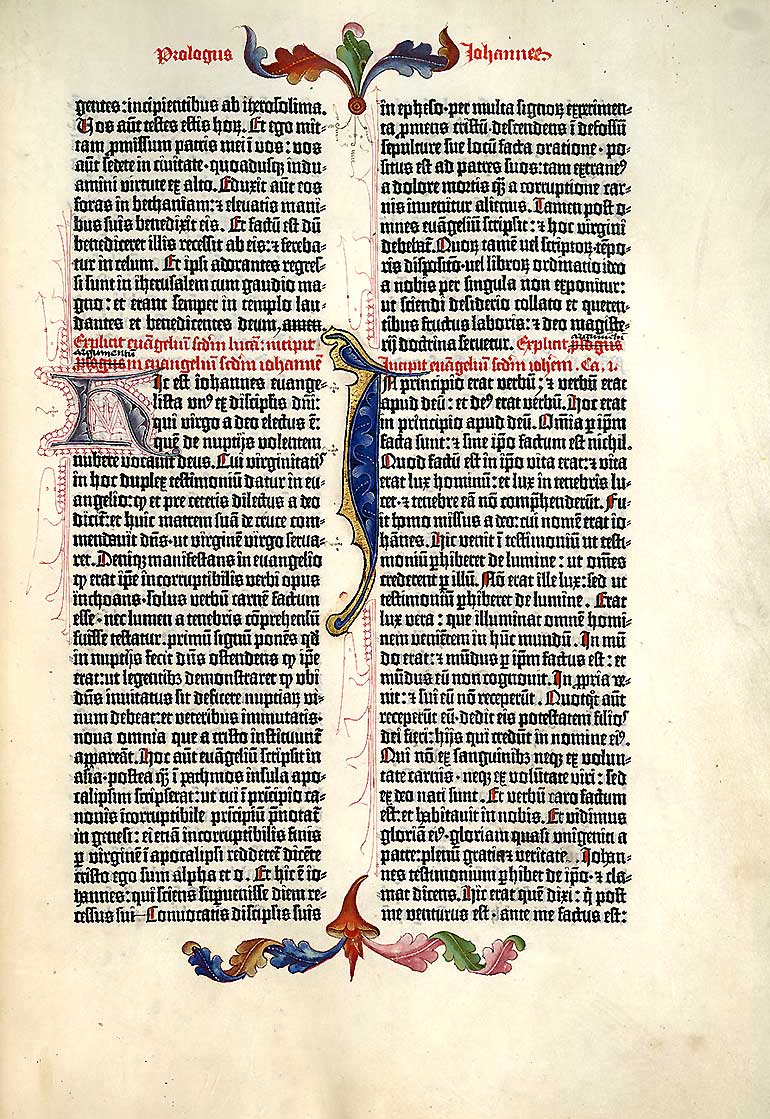 Prologus
Iohannes
gentes: incipientibus ab iherosolima.
Vos aūt testes estis hoꝝ. Et ego mit-
tam ꝓmissum patris mei ī vos: vos
aūt sedete in civitate · quoadusqꝫ indu-
amini virtute ex alto. Eduxit aūt eos
foras in bethaniam: ⁊ elevatis mani-
bus suis benedixit eis. Et factū est dū
benediceret illis recessit ab eis: ⁊ fereba-
tur in celum. Et ipsi adorantes regres-
si sunt in iherusalem cum gaudio ma-
gno: et erant semper in templo lau-
dantes et benedicentes deum, amen.
Explicit euāgeliū scdm lucā: incipit
argumentū
prologus in euangeliū scdm iohannē
Hic est iohannes euange-
lista vnꝰ ex discipl̄is dn̄i:
qui virgo a deo electus ē:
quē de nuptijs volentem
nubere vocauit deus. Cui virginitatꝭ
in hoc duplex testimoniū datur in eu-
angelio: ꝙ et pre ceteris dilectus a deo
dicit᷑: et huic matrem suā de cruce com-
mendauit dn̄s · ut virginē virgo serua-
ret. Deniqꝫ manifestans in euangelio
ꝙ erat ip̄e incorruptibilis verbi opus
inchoans · solus verbū carnē factum
esse · nec lumen a tenebris cōprehensū
fuisse testatur. primū signū ponēs qd̄
in nuptijs fecit dn̄s ostendens ꝙ ip̄e
erat: ut legentibꝫ demonstraret ꝙ ubi
dn̄s inuitatus sit deficere nuptiaꝝ vi-
num debeat: et veteribus immutatis ·
noua omnia que a cristo instituunt᷑
appareāt. Hoc aūt euāgeliū scripsit in
asia · postea qꝫ̄ ī pathmos insula apo-
calipsim scripserat: ut cui ī prīcipio ca-
nonis īcorruptibile prīcipiū p̄notat᷑
in genesi: ei etiā incorruptibilis finis
ꝑ virginē ī apocalipsi redderet᷑ dicēte
cristo ego sum alpha et o. Et hic ē io-
hannes: qui sciens suꝑuenisse diem re-
cessus sui—Conuocatis discipl̄is suis
in epheso · per multa signoꝝ experimen-
ta ꝓmens cristū · descendens ī defossū
sepulture sue locū facta oratione · po-
situs est ad patres suos: tam extraneꝰ
a dolore mortis qꝫ̄ a corruptione car-
nis inuenitur alienus. Tamen post o-
mnes euāgeliū scripsit: ⁊ hoc virgini
debebat᷑. Quoꝝ tamē uel scriptoꝝ tēpo-
ris dispositio · uel libroꝝ ordinatio ideo
a nobis per singula non exponitur:
ut sciendi desiderio collato et queren-
tibus fructus laboris: ⁊ deo magiste-
rij doctrina seruetur. Explicit prologus
argumentū
Incipit euāgeliū scdm ioh'em. Ca. i.
In principio erat verbū: ⁊ verbū erat
apud deū: et deꝰ erat verbū. Hoc erat
in principio apud deū. Om̄ia ꝑ ip̄m
facta sunt: ⁊ sine ip̄o factum est nichil.
Quod factū est in ip̄o vita erat: ⁊ vita
erat lux hominū: et lux in tenebris lu-
cet · ⁊ tenebre eā nō comp̄henderūt. Fu-
it homo missus a deo: cui nomē erat io-
hānes. Hic venit ī testimoniū ut testi-
moniū ꝑhiberet de lumine: ut om̄es
crederent ꝑ illū. Nō erat ille lux: sed ut
testimoniū ꝑhiberet de lumine. Erat
lux vera: que illuminat omnē homi-
nem venientē in hūc mundū. In mū-
do erat: ⁊ mūdus ꝑ ip̄m factus est: et
mūdus eū non cognouit. In ꝓpria ve-
nit: ⁊ sui eū nō receperūt. Quotqͦt aūt
receperūt eū · dedit eis potestatem filioꝭ
dei fieri: hijs qui credūt in nomine eiꝰ.
Qui nō ex sanguinibꝫ neqꝫ ex volun-
tate carnis · neqꝫ ex volūtate viri: sed
ex deo nati sunt. Et verbū caro factum
est: et habitauit in nobis. Et vidimus
gloriā eiꝰ · gloriam quasi vnigeniti a
patre: plenū gratia ⁊ veritate. Iohan-
nes testimonium ꝑhibet de ip̄o · ⁊ cla-
mat dicens. Hic erat quē dixi: q̄ post
me venturus est · ante me factus est: